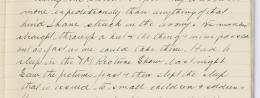 more expeditiously than anything of that
kind I have struck in the army. We marched
straight through a hut & the things were passed
out as fast as we could take them. Had to
sleep in the YM Restine Show last night.
Saw the pictures first & then slept the sleep
that is issued to small children & soldiers